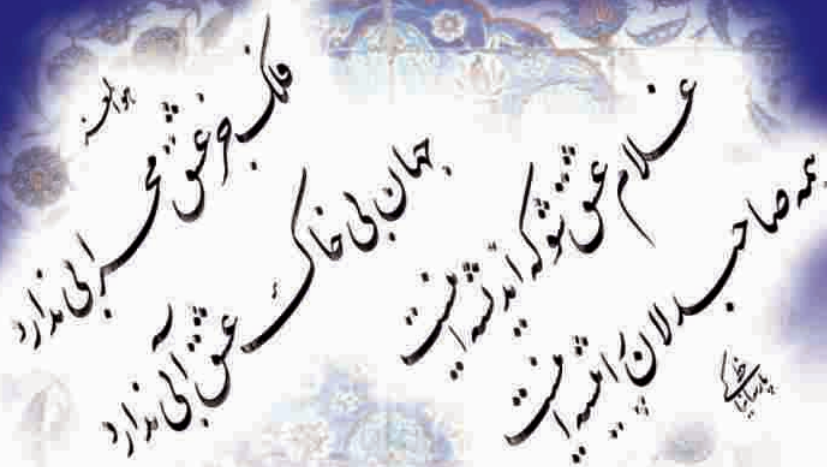 هوالعزیز
فلک جز عشق محرابی ندارد
جهان بی خاک عشق آبی ندارد
غلام عشق شو که اندیشه اینست
همه صاحبدلان را پیشه اینست